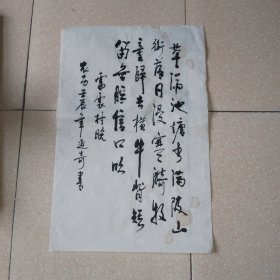 草满池塘水满陂山
衔落日浸寒漪牧
童归去横牛背短
笛无腔信口吹
雷震村晚
岁在壬辰年道奇书